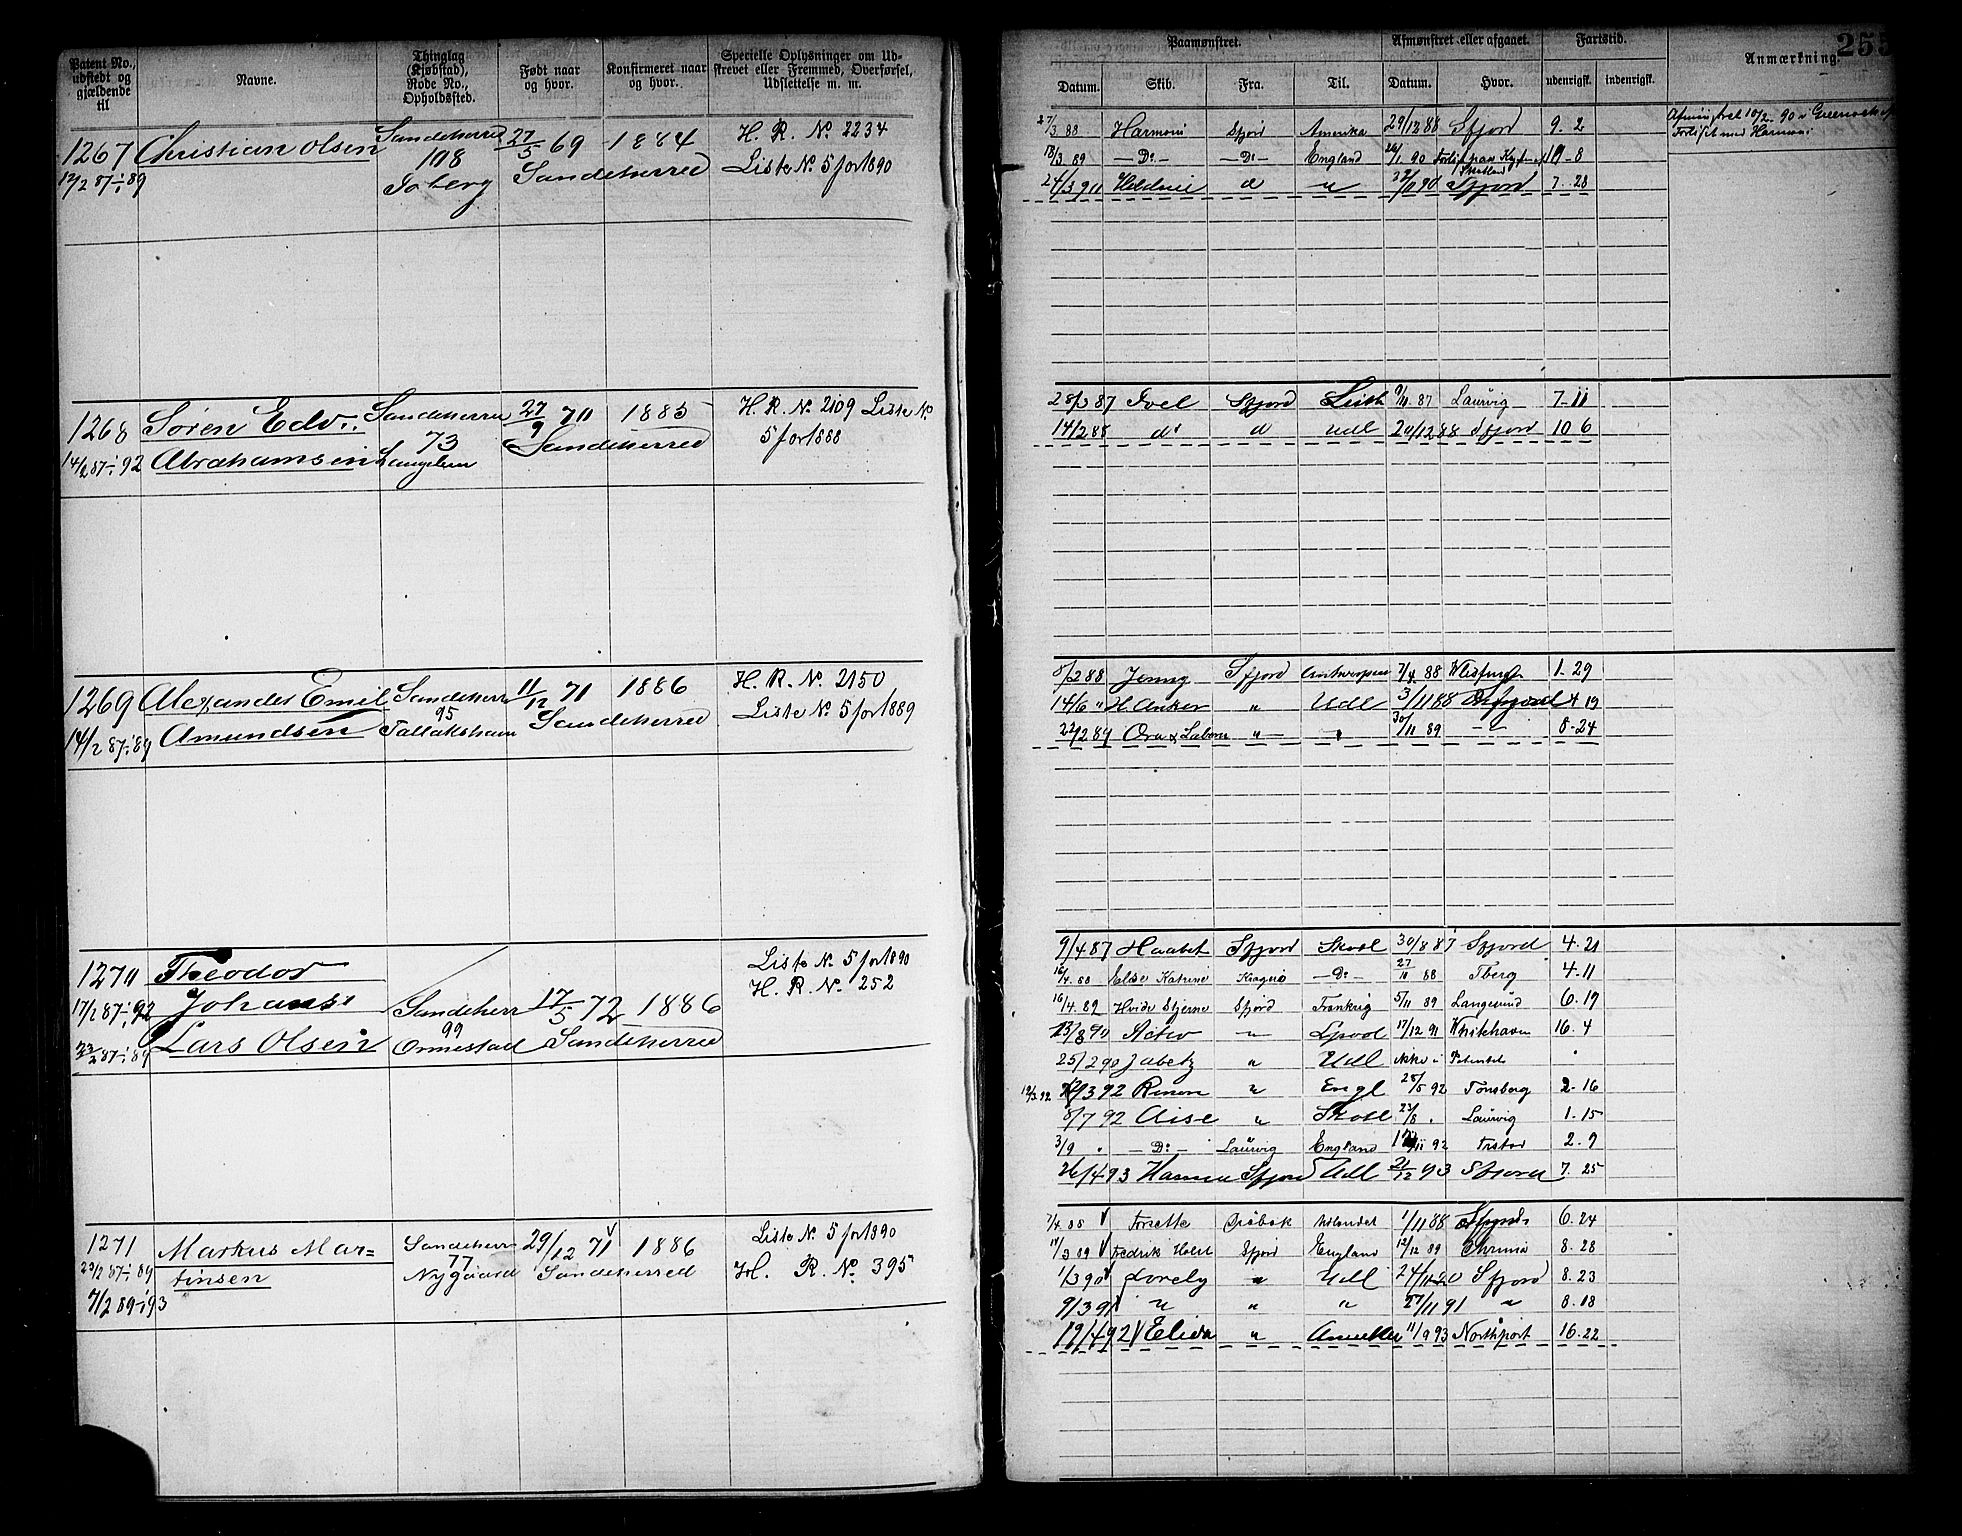 Patent No., udstedt og gjældende til
Navne.
Thinglag (Kjøbstad), Rode No., Opholdssted.
Født naar og hvor.
Konfirmeret naar og hvor.
Specielle Oplysninger om Udskrevet eller Fremmed, Overførsel, Udslettelse m. m.
1267
12/2 87 ÷ 89
Christian Olsen
Sandeherred
108
27/5 69
Sandeherred
1884
H. R. No 2234
Liste No 5 for 1890
1268
14/2 87 ÷ 92
Søren Edv.
Abrahamsen
Sandeherred
73
27/9 70
Sandeherred
1885
H. R. No 2109 Liste No
5 for 1888
1269
14/2 87 ÷ 89
Alexander Emil
Amundsen
Sandeherr
95
11/12 71
Sandeherred
1886
H. R. No. 2150
Liste No 5 for 1889
1270
17/2 87 ÷ 92
22/2 87 ÷ 89
Theodor
Johans
Lars Olsen
Sandeherr
99
Ormestad
17/5 72
Sandeherred
1886
Liste No 5 for 1890
H. R. No. 252
1271
23/2 87 ÷ 89
7/2 89 ÷ 93
Markus Mar=
tinsen
Sandeherr
77
Nygaard
29/12 71
Sandeherred
1886
Liste No. 5 for 1890
H. R. No. 395
Paamønstret.
Afmønstret eller afgaaet.
Fartstid.
Anmærkning.
255
Datum.
Skib.
Fra.
Til.
Datum.
Hvor.
udenrigsk.
indenrigsk.
27/3 88 Harmoni Sfjord Amerika 29/12 88 Sfjord 9. 2
18/3 89 - Do - - Do - England 26/1 90
24/3 90 Sfjord 7. 28
28/3 87 Ivel Sfjord Leith 9/11 87 Laurvig 7-11
14/2 88 do d Udl 20/12 88 Sfjord 10 6
8/2 88 Jenny Sfjord Antwerpen 7/4 88 1. 29
14/6 " H Anker " Udl 3/11 88 4 19
22/2 89 " 30/11 89 " 8-24
9/4 87 Haabet Sfjord Skotl 30/8 87 Sfjord 4. 21
16/4 88 Else Katrine Kragerø - Do - 27/10 88 Tberg 4-11
16/4. 89 Hvide Stjerne Sfjord Frankrig 5/11 89 Langesund 6. 19
" Lpool 17/12 91 16. 4
25/2 90 Jabetz " Udl ikke i Patentet
19/3 92 " Engl 25/5 92 Tønsberg 2- 16
8/7 92 " Skotl 23/8 . Laurvig 1. 15
3/9 " - Do - Laurvig England 92 2. 9
26/4 93 Hanna Sfjord Udl 21/12 93 Sfjord 7. 25
7/4. 88 Forsette Drøbak 1/11 88 6. 24
Fredrik Holst Sfjord England 12/12 89 8. 28
1/3 90 " Udl Sfjord 8. 23
9/3 91 " " " 27/11 91 " 8. 18
19/4 92 Elida " 11/9 93 Northport 16. 22